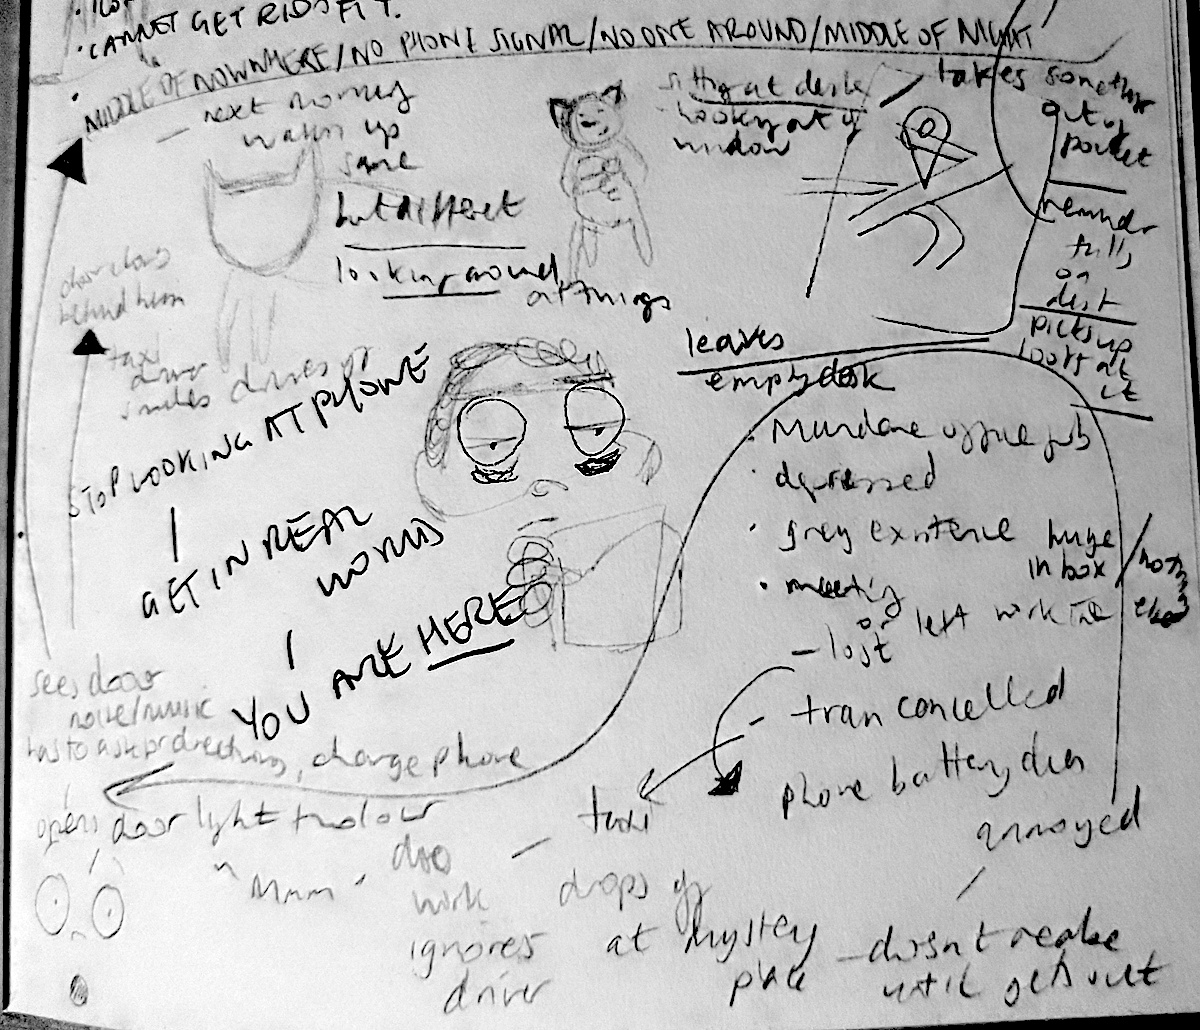 CANNET GET RID OF IT.
MIDDLE OF NOWHERE/NO PHONE SIGNAL/NO ONE AROUND/MIDDLE OF NIGHT
next morning
waken up
same
but different
looking around
at things
sitting at desk
looking out of
window
takes something
out of
pocket
reminder
falls
on
desk
picks up
looks at
it
leaves
empty desk
door closes
behind him
taxi
driver
smiles drives off
STOP LOOKING AT PHONE
GET IN REAL
WORLD
YOU ARE HERE
Mundane office job
depressed
grey existence
huge
inbox
nothing
else
meeting
or left work late
lost
train cancelled
phone battery dies
annoyed
sees door
noise/music
has to ask for directions, charge phone
opens door light
"Mmm"
does
work
ignores
driver
taxi
drops off
at mystery
place
doesn't realise
until gets out